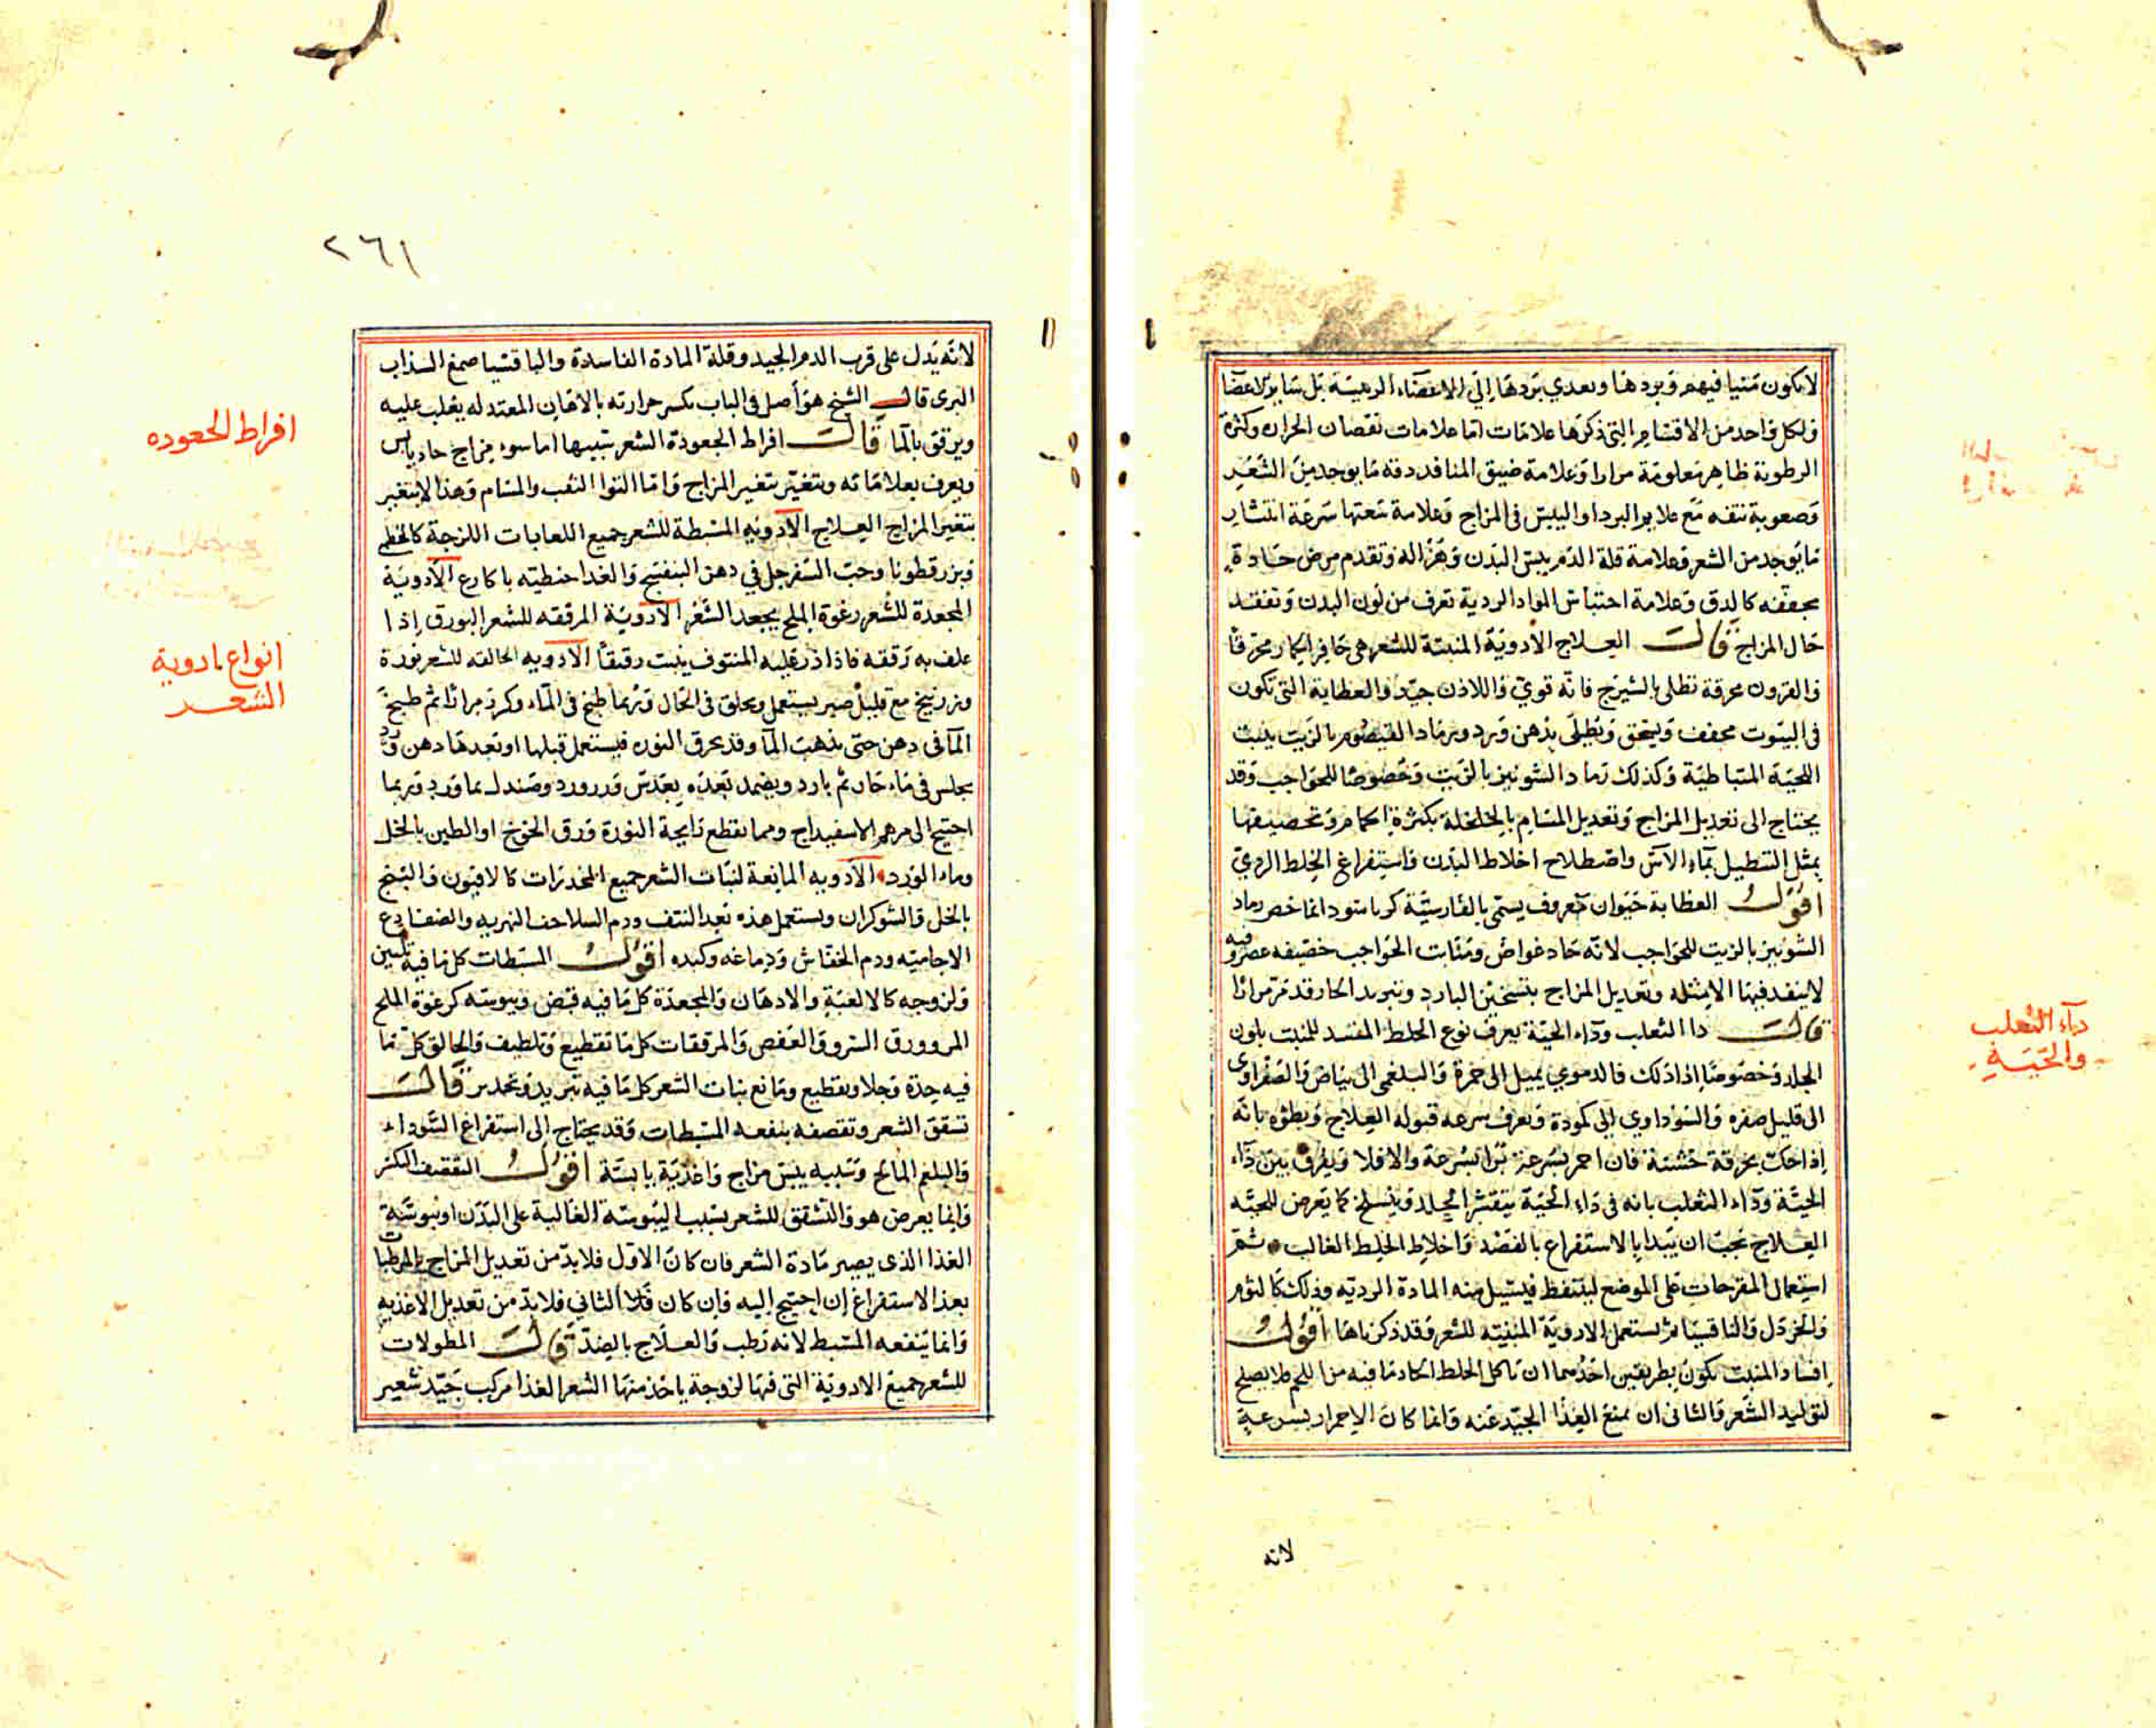 لا يكون منيا فيهم وبردها ويعدي بردها الي الاعضاء الرئيسة بل سائر الاعضا
ولكل واحد من الاقسام التي ذكرها علامات اما علامات نقصان الحرارة وكثرة
الرطوبة ظاهرة معلومة مرارا وعلامة ضيق المنافذ دقة ما يوجد من الشعر
وصعوبة نتفه مع علايم البرد او اليبس في المزاج وعلامة سعتها سرعة انتشار
ما يوجد من الشعر وعلامة قلة الدم يبس البدن وهزاله وتقدم مرض حادة
مجففه كالدق وعلامة احتباس المواد الردية تعرف من لون البدن وتفقد
حال المزاج قال العلاج الادوية المنبتة للشعر هي حافر الحمار محرقا
والقرون محرقة تطلى بالشيرج فانه قوي واللاذن جيد والعظاية التي تكون
في البيوت مجفف ويسحق ويطلى بدهن ورد ورماد القيصوم بالزيت ينبت
اللحية المتباطية وكذلك رماد الشونيز بالزيت وخصوصا للحواجب وقد
يحتاج الى تعديل المزاج وتعديل المسام بالخلخلة بكثرة الحمام وتحصيفها
بمثل التنطيل بماء الآس واصطلاح اخلاط البدن واستفراغ الخلط الردي
اقول العظاية حيوان معروف يسمى بالفارسية كرباسو وانما خص رماد
الشونيز بالزيت للحواجب لانه حاد غواص ومنابت الحواجب خصيفه عصر فيه
لا ينفذ فيها الا بمثله وتعديل المزاج بتسخين البارد وتبريد الحار وقد مر مرارا
قال دا الثعلب ودآء الحية يعرف نوع الخلط المفسد للمنبت بلون
الجلد وخصوصا اذا دلك فالدموي يميل الى حمرة والبلغمى الى بياض والصفراوى
الى قليل صفره والسوداوي الى كمودة ويعرف سرعه قبوله العلاج وبطؤه بانه
اذا حك بخرقة خشنة فان احمر بسرعة برا بسرعة والا فلا ويفرق بين دآء
الحيّة ودآء الثعلب بانه في داء الحية يتقشر الجلد وينسلخ كما يعرض للحيّه
العلاج يجب ان يبدا بالاستفراغ بالفصد واخلاط الخلط الغالب ثم
استعمال المقرحات على الموضع ليتنفط فيسيل منه المادة الردية وذلك كالثوم
والخردل والثافسيا ثم يستعمل الادوية المنبتة للشعر وقد ذكرناها اقول
افساد المنبت يكون بطريقين احدهما ان ياكل الخلط الحاد ما فيه من اللحم فلا يصلح
لتوليد الشعر والثانى ان يمنع الغذا الجيد عنه وانما كان الاحمرار بسرعة
لانه
دآء الثعلب
والحيّة
٢٦١
لانه يدل على قرب الدم الجيد وقلة المادة الفاسدة والثافسيا صمغ السذاب
البرى قال الشيخ هو أصل في الباب تكسر حرارته بالادهان المعتدله يغلب عليه
ويرقق بالما قال افراط الجعودة الشعر سببها اما سوء مزاج حار يابس
ويعرف بعلاماته ويتغير بتغير المزاج واما التوا الثقب والمسام وهذا لا يتغير
بتغير المزاج العلاج الادويه المسبطة للشعر جميع اللعابات اللزجة كالخطمى
وبزر قطونا وحب السفرجل في دهن البنفسج والغدا حنطيته باكارع الادوية
المجعدة للشعر رغوة الملح يجعد الشعر الادوية المرققه للشعر البورق اذا
علف به رققه فاذا ذر عليه المنتوف ينبت رقيقا الادويه الحالقه للشعر نورة
وزرنيخ مع قليل صبر يستعمل ويحلق في الحال وربما طبخ في الماء وكرر مرارا ثم طبخ
المآ فى دهن حتى يذهب المآ وقد يحرق النوره فيستعمل قبلها او بعدها دهن ورد
يجلس في ماء حار ثم بارد ويضمد بعده بعدس وورورد وصندل بماورد وربما
احتيج الى مرهم الاسفيداج ومما يقطع رايحة النورة ورق الخوخ او الطين بالخل
وماء الورد الادويه المانعة لنبات الشعر جميع المخدرات كالافيون والبنج
بالخل والشوكران ويستعمل هذه بعد النتف ودم السلاحف النهريه والضفادع
الاجاميه ودم الخفاش ودماغه وكبده اقول المسبطات كل ما فيه تليين
ولزوجه كالالعبة والادهان والمجعدة كل ما فيه قبض ويبوسه كرغوة الملح
المر وورق السرو والعفص والمرققات كل ما تقطيع وتلطيف والحالق كل ما
فيه حدة وجلا وتقطيع ومانع نبات الشعر كل ما فيه تبريد وتخدير قال
تشقق الشعر وتقصفه ينفعه المسبطات وقد يحتاج الى استفراغ السوداء
والبلغم المالح وسببه يبس مزاج واغذية يابسة اقول التقصف التكسر
وانما يعرض هو والتشقق للشعر بسبب اليبوسة الغالبة على البدن او يبوسة
الغذا الذى يصير مادة الشعر فان كان الاول فلا بد من تعديل المزاج بالمرطبات
بعد الاستفراغ ان احتيج اليه وان كان الثاني فلا بد من تعديل الاغذيه
وانما ينفعه المسبط لانه رطب والعلاج بالضد قال المطولات
للشعر جميع الادوية التى فيها لزوجة ياخذ منها الشعر الغذا مركب جيد شعير
افراط الجعوده
انواع ادوية
الشعر